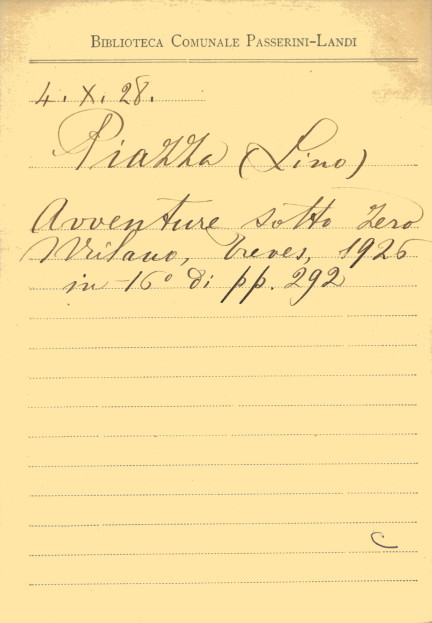 BIBLIOTECA COMUNALE PASSERINI-LANDI
4. X. 28.
Piazza (Lino)
Avventure sotto Zero
Milano, Treves, 1926
in -16° di pp. 292
C